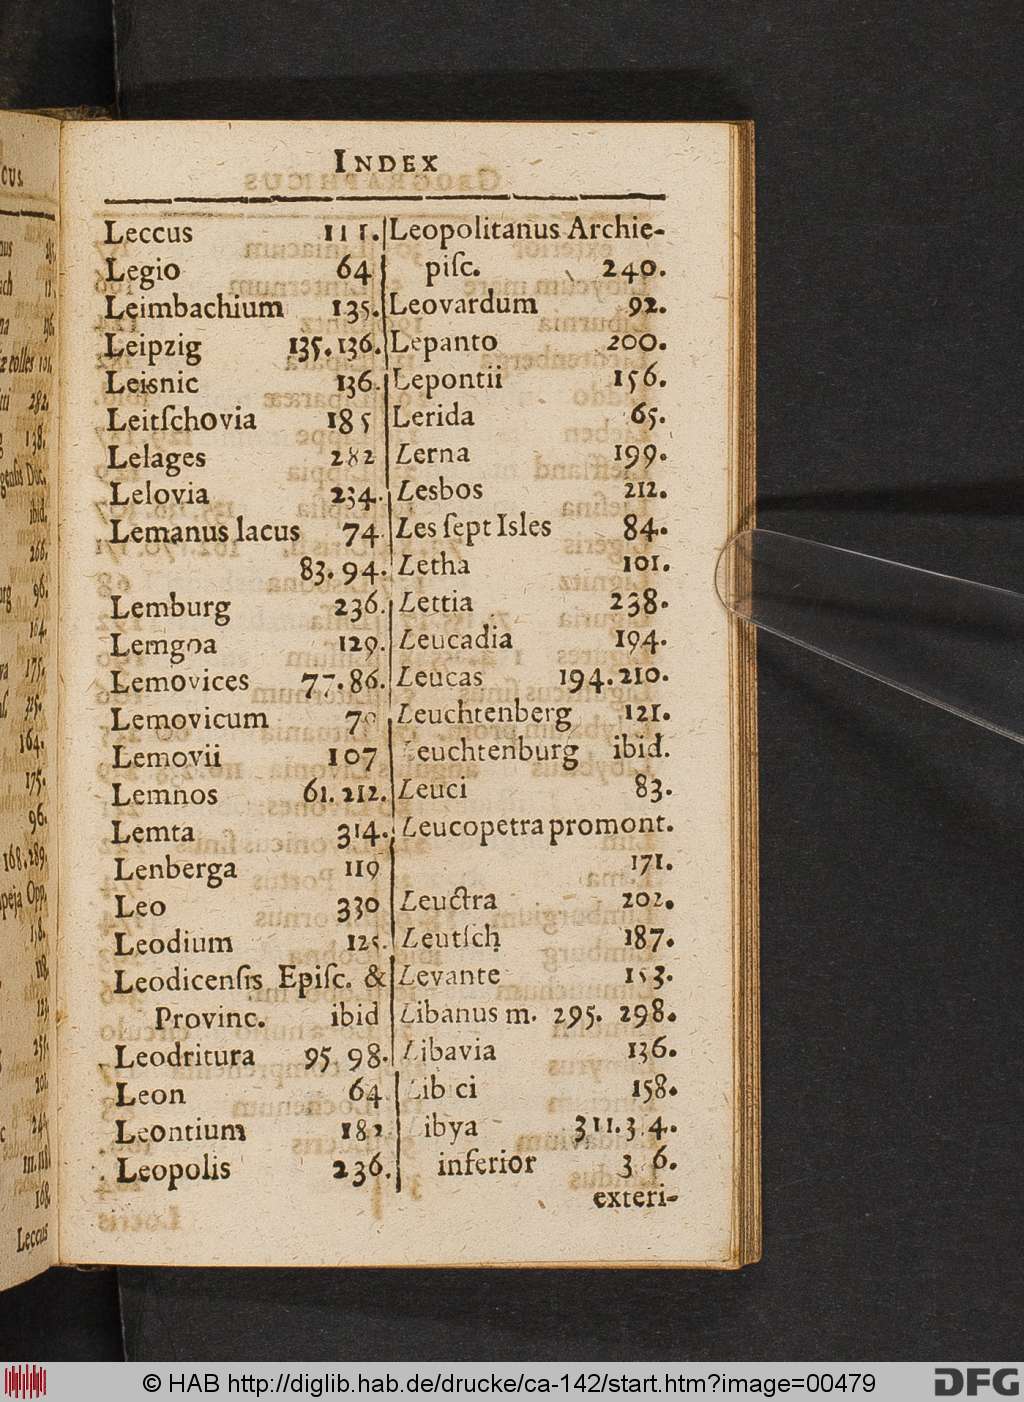 INDEX
Leccus 111.
Legio 64
Leimbachium 135.
Leipzig 135.136.
Leisnic 136.
Leitſchovia 185
Lelages 282
Lelovia 234.
Lemanus lacus 74
83.94.
Lemburg 236.
Lemgoa 129.
Lemovices 77.86.
Lemovicum
Lemovii 107
Lemnos 61.212.
Lemta 314.
Lenberga 119
Leo 330
Leodium 125.
Leodicenſis Epiſc. &
Provinc. ibid
Leodritura 95 98.
Leon 64
Leontium 182
Leopolis 236.
Leopolitanus Archie-
piſc. 240.
Leovardum 92.
Lepanto 200.
Lepontii 156.
Lerida 65.
Lerna 199.
Lesbos 212.
Les ſept Isles 84.
Letha 101.
Lettia 238.
Leucadia 194.
Leucas 194.210.
Leuchtenberg 121.
Leuchtenburg ibid.
Leuci 83.
Leucopetra promont.
171.
Leuctra 202.
Leutſch 187.
Levante 153.
Libanus m. 295. 298.
Libavia 136.
Lib ci 158.
ibya 311.3 4.
inferior 3 6.
exteri-
cus.
colles 101.
282.
138.
Duc.
ibid.
266.
96.
164.
175.
164.
175.
96.
168.289.
Opp.
Leccus
© HAB http://diglib.hab.de/drucke/ca-142/start.htm?image=00479
DFG